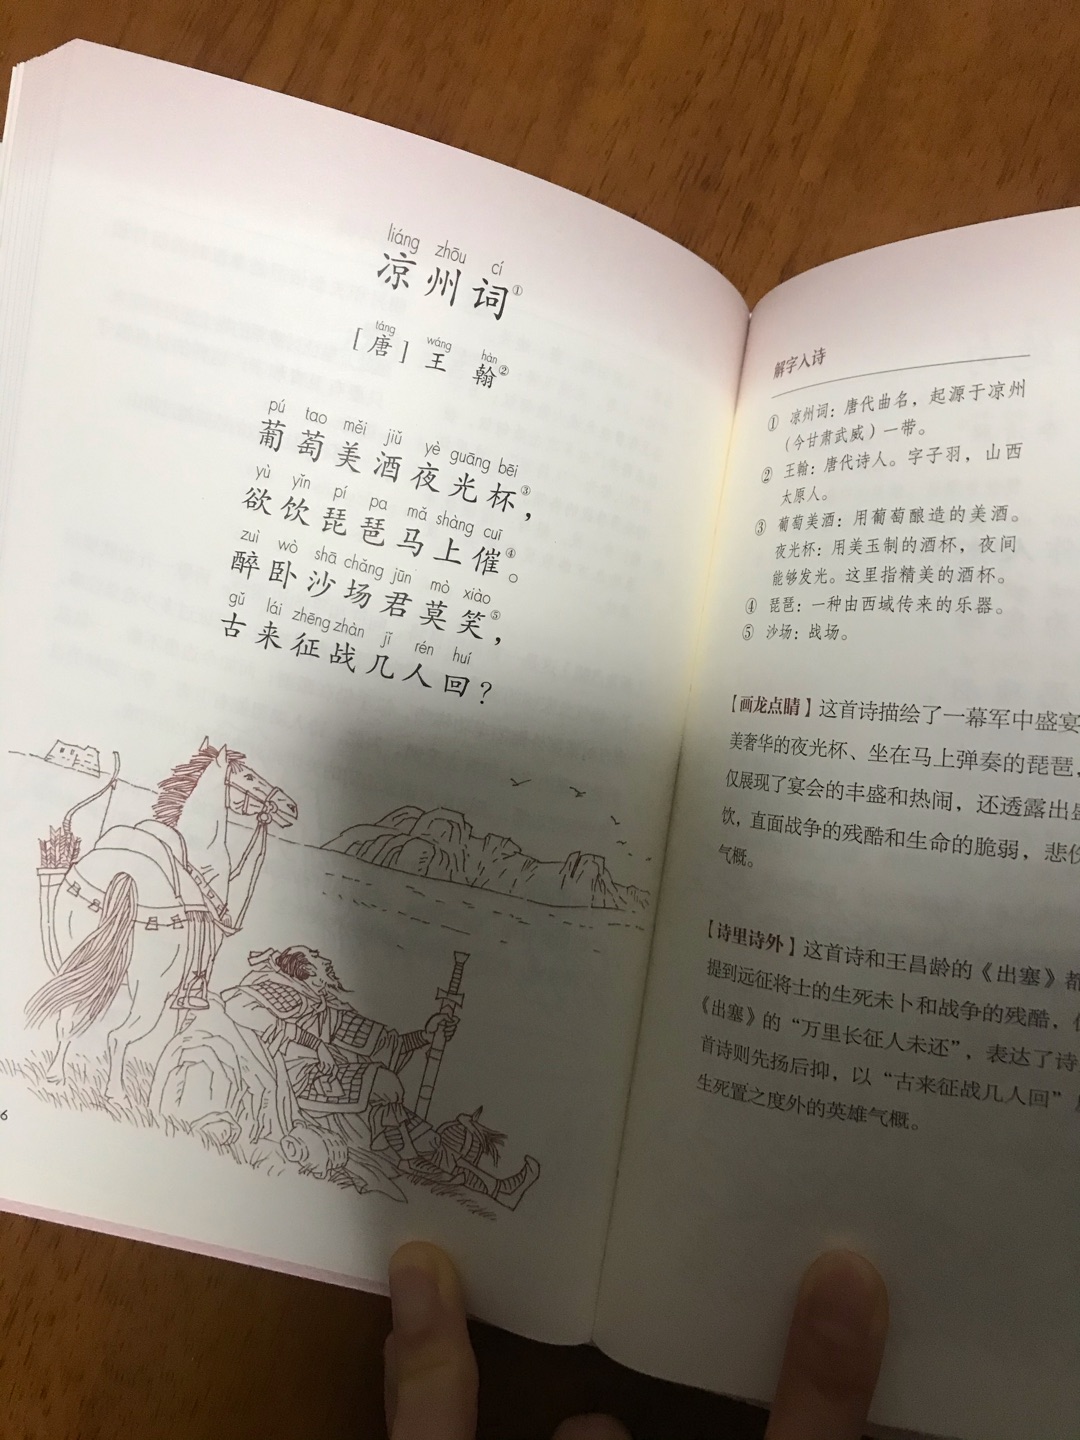 liáng zhōu cí
凉州词①
táng wáng hàn
［唐］王 翰②
pú tao měi jiǔ yè guāng bēi
葡萄美酒夜光杯③，
yù yǐn pí pa mǎ shàng cuī
欲饮琵琶马上催④。
zuì wò shā chǎng jūn mò xiào
醉卧沙场君莫笑⑤，
gǔ lái zhēng zhàn jǐ rén huí
古来征战几人回？
6
解字入诗
① 凉州词：唐代曲名，起源于凉州
（今甘肃武威）一带。
② 王翰：唐代诗人。字子羽，山西
太原人。
③ 葡萄美酒：用葡萄酿造的美酒。
夜光杯：用美玉制的酒杯，夜间
能够发光。这里指精美的酒杯。
④ 琵琶：一种由西域传来的乐器。
⑤ 沙场：战场。
【画龙点睛】这首诗描绘了一幕军中盛宴
美奢华的夜光杯、坐在马上弹奏的琵琶，
仅展现了宴会的丰盛和热闹，还透露出
饮，直面战争的残酷和生命的脆弱，悲
气概。
【诗里诗外】这首诗和王昌龄的《出塞》都
提到远征将士的生死未卜和战争的残酷，
《出塞》的“万里长征人未还”，表达了诗
首诗则先扬后抑，以“古来征战几人回”
生死置之度外的英雄气概。